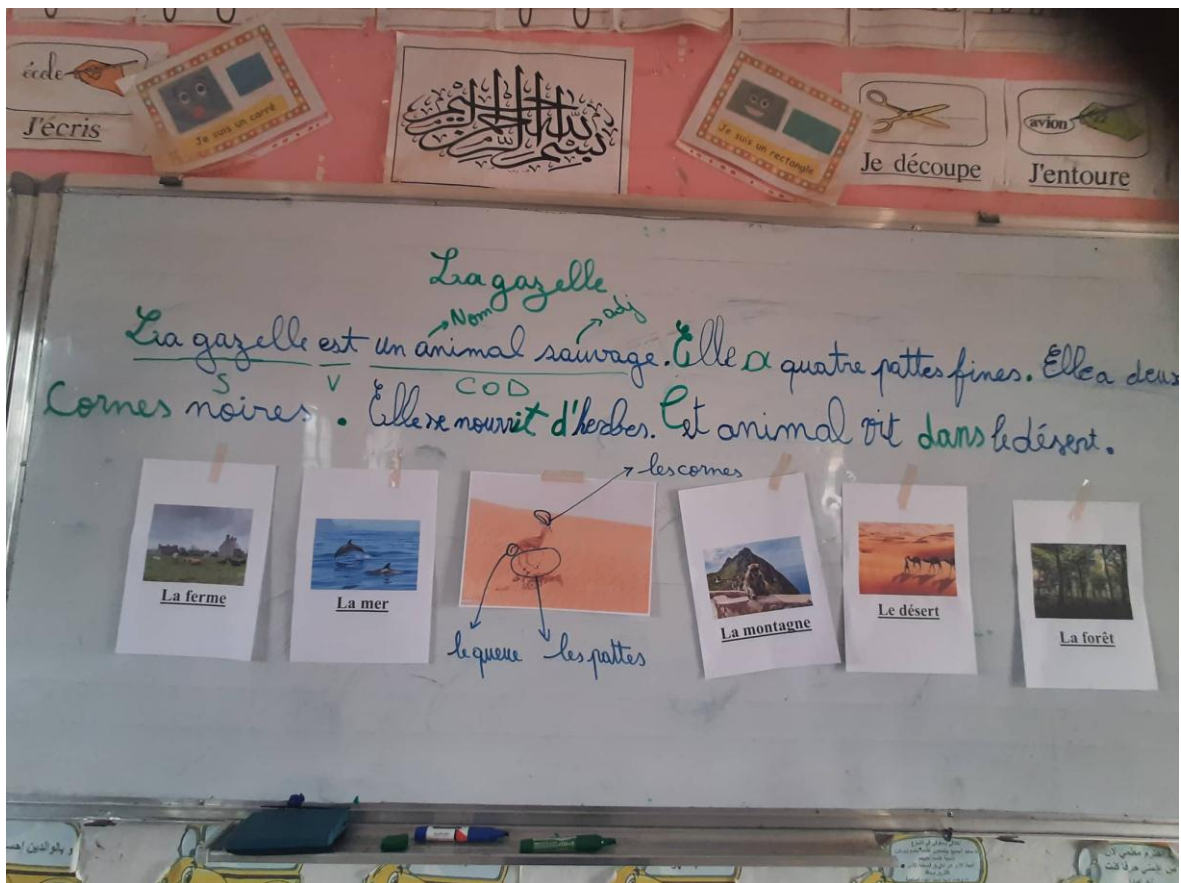 école
J'écris
Je suis un carré
بسم الله الرحمن الرحيم
Je suis un rectangle
Je découpe
avion
J'entoure
La gazelle
Nom
adj
La gazelle est un animal sauvage. Elle a quatre pattes fines. Elle a deux
S
V
COD
Cornes noires. Elle se nourrit d'herbes. Cet animal vit dans le désert.
les cornes
La ferme
La mer
La montagne
Le désert
La forêt
la queue
les pattes